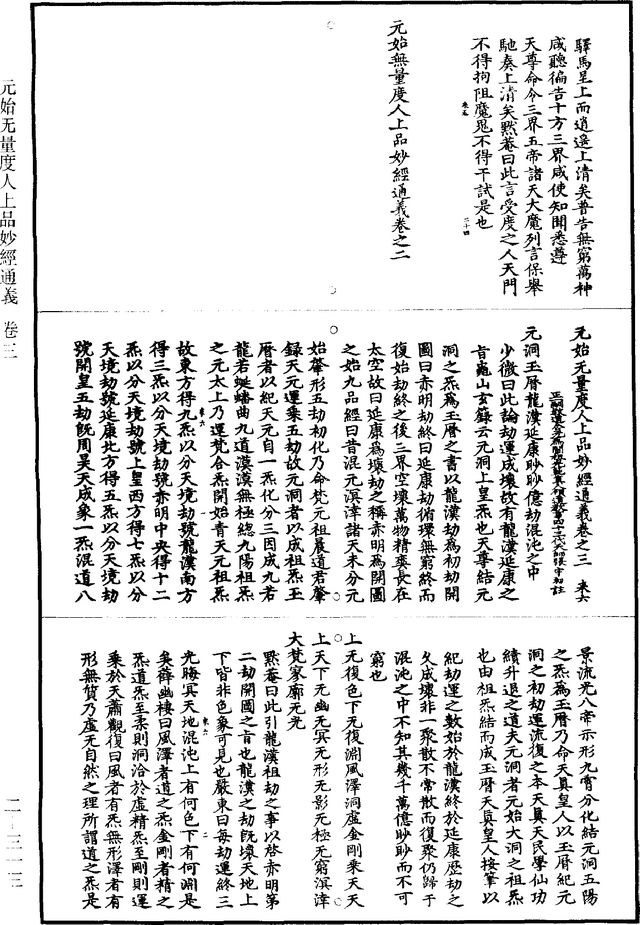 驛馬呈上而逍遙上清矣普告無窮萬神
咸聽徧告十方三界咸使知聞悉遵
天尊命令三界五帝諸天大魔列言保舉
馳奏上清矣黙菴曰此言受度之人天門
不得拘阻魔鬼不得干試是也
來五 二十四
元始無量度人上品妙經通義卷之二
元始无量度人上品妙經通義卷之三 來六
四十三代天師張宇初註
元洞玉曆龍漢延康眇眇億劫混沌之中
少微曰此論劫運成壞故有龍漢延康之
言龜山玄籙云元洞上皇炁也天尊結元
洞之炁為玉曆之書以龍漢劫為初劫開
圖曰赤明劫終曰延康劫循環無窮終而
復始劫終之後三界空壞萬物精爽長在
太空故曰延康為壞劫之稱赤明為開圖
之始九品經曰昔混元溟涬諸天未分元
始肇形五劫初化乃命梵元祖嚴道君肇
録天元運乗五劫故元洞者以成祖炁玉
曆者以紀天元自一炁化分三因成九若
龍若蜒蟠曲九道漠漠無極總九陽祖炁
之元太上乃運梵合炁開始青天元祖炁
來六 一
故東方得九炁以分天境劫號龍漢南方
得三炁以分天境劫號赤明中央得十二
炁以分天境劫號上皇西方得七炁以分
天境劫號延康北方得五炁以分天境劫
號開皇五劫旣周昊天成象一炁混道八
景流光八帝示形九霄分化結元洞五陽
之炁爲玉曆乃命天眞皇人以玉曆紀元
洞之初劫運流復之本天眞天民學仙功
續升退之道夫元洞者元始大洞之祖炁
也由祖炁結而成玉曆天眞皇人按筆以
紀劫運之數始於龍漢終於延康歷劫之
久成壞非一聚散不常散而復聚仍歸于
混沌之中不知其幾千萬億眇眇而不可
窮也
上无復色下无復淵風澤洞虛金剛乗天天
上天下无幽无冥无形无影无極无窮溟涬
大梵寥廓无光
黙菴曰此引龍漢祖劫之事以啓赤明第
二劫開圖之言也龍漢之劫旣壞天地上
下皆非色象可見也嚴東曰每劫運終三
來六 二
光晦冥天地混沌上有何色下有何淵是
矣薛幽棲曰風澤者道之炁金剛者精之
炁道炁至柔則洞洽於虛精炁至剛則運
乗於天蕭觀復曰風者有炁無形澤者有
形無質乃虛无自然之理所謂道之炁是
元始无量度人上品妙經通義 卷三
二－三一三